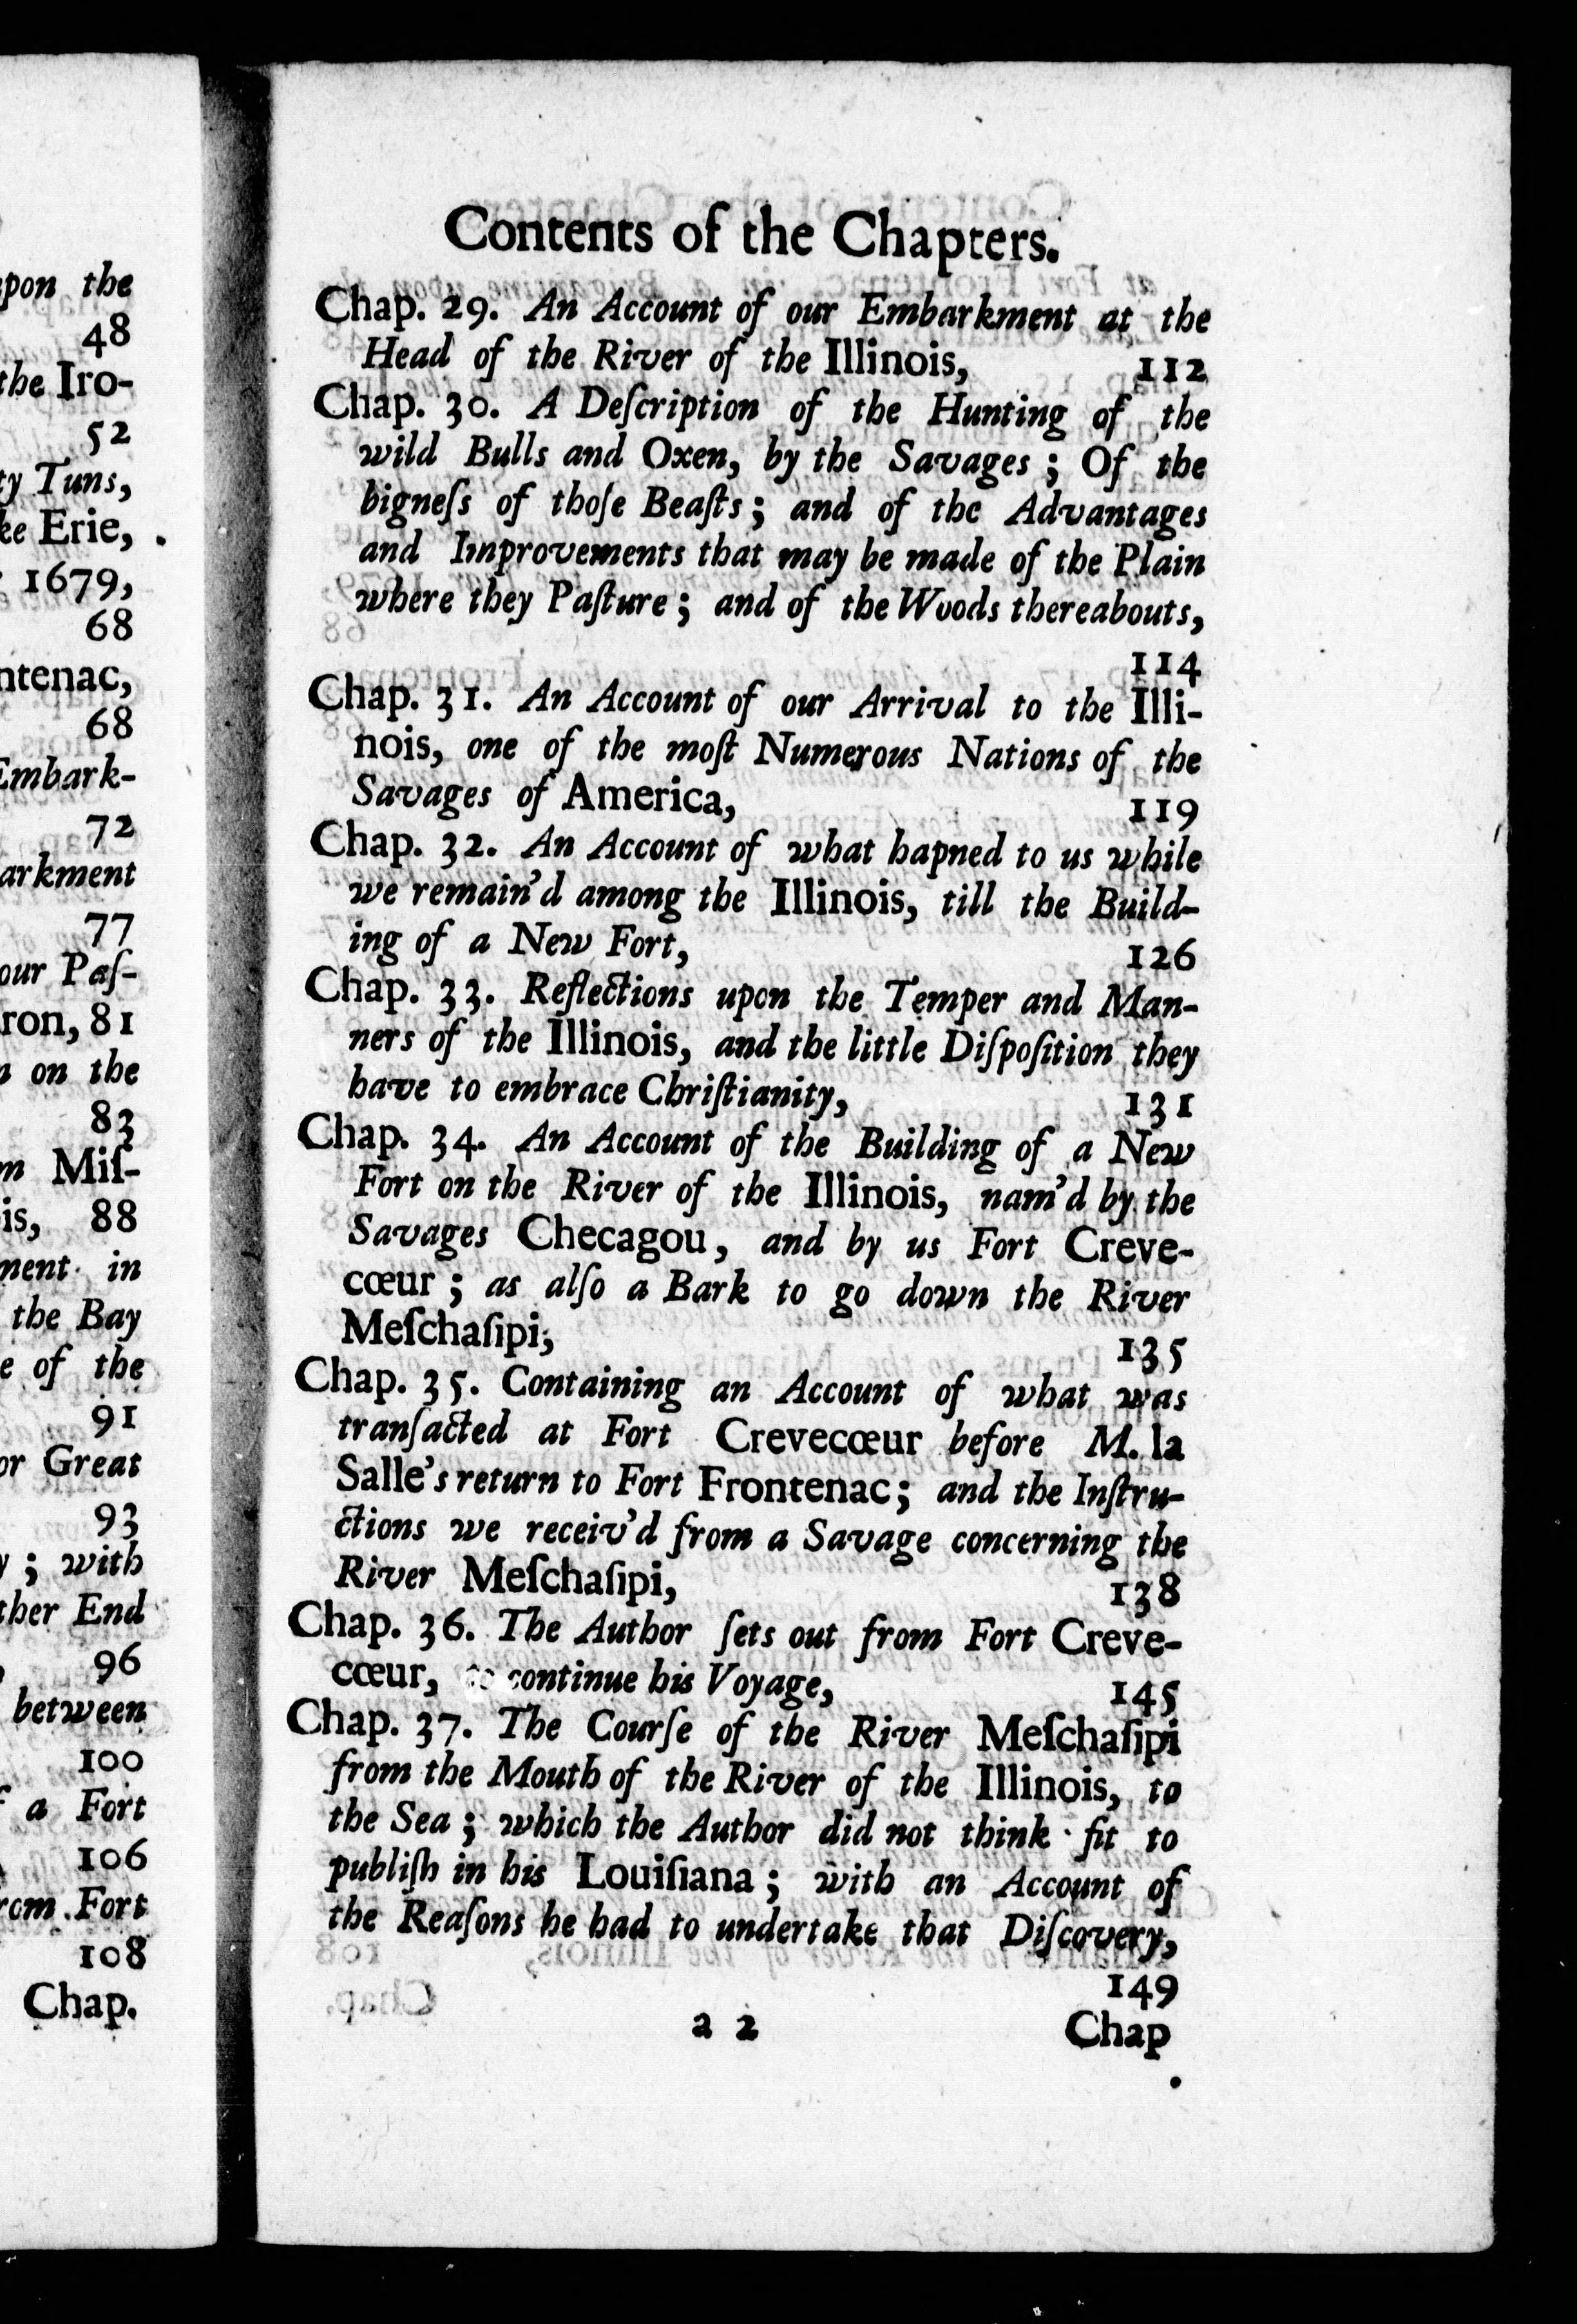 pon the
48
the Iro-
52
ty Tuns,
ke Erie,
1679,
68
ntenac,
68
Embark-
72
arkment
77
our Paſ-
ron, 81
on the
83
m Miſ-
is, 88
ment in
the Bay
e of the
91
or Great
93
; with
ther End
96
between
100
a Fort
106
rom Fort
108
Chap.
Contents of the Chapters.
Chap. 29. An Account of our Embarkment at the
Head of the River of the Illinois, 112
Chap. 30. A Deſcription of the Hunting of the
wild Bulls and Oxen, by the Savages; Of the
bigneſs of thoſe Beaſts; and of the Advantages
and Improvements that may be made of the Plain
where they Paſture; and of the Woods thereabouts,
114
Chap. 31. An Account of our Arrival to the Illi-
nois, one of the moſt Numerous Nations of the
Savages of America, 119
Chap. 32. An Account of what hapned to us while
we remain'd among the Illinois, till the Build-
ing of a New Fort, 126
Chap. 33. Reflections upon the Temper and Man-
ners of the Illinois, and the little Diſpoſition they
have to embrace Chriſtianity, 131
Chap. 34. An Account of the Building of a New
Fort on the River of the Illinois, nam'd by the
Savages Checagou, and by us Fort Creve-
cœur; as alſo a Bark to go down the River
Meſchaſipi, 135
Chap. 35. Containing an Account of what was
tranſacted at Fort Crevecœur before M. la
Salle's return to Fort Frontenac; and the Inſtru-
ctions we receiv'd from a Savage concerning the
River Meſchaſipi, 138
Chap. 36. The Author ſets out from Fort Creve-
cœur, to continue his Voyage, 145
Chap. 37. The Courſe of the River Meſchaſipi
from the Mouth of the River of the Illinois, to
the Sea; which the Author did not think fit to
publiſh in his Louiſiana; with an Account of
the Reaſons he had to undertake that Diſcovery,
149
a 2 Chap